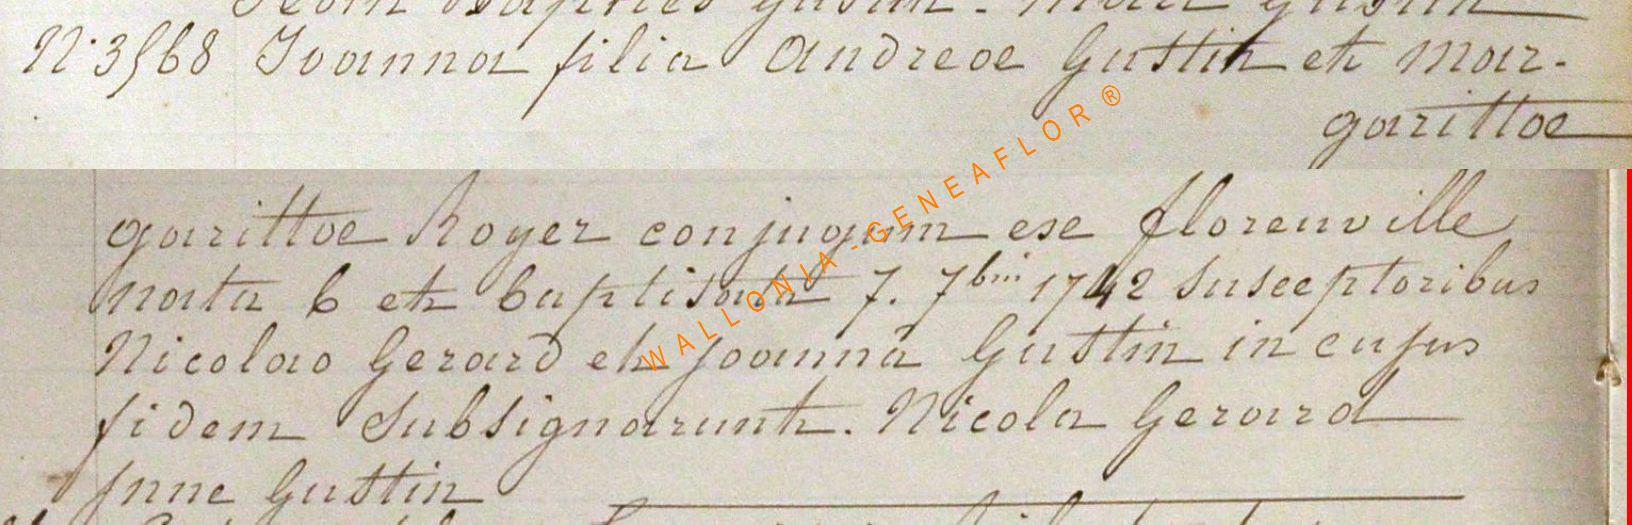 Jean Baptiste Gustin.
N.° 3568 Joanna filia Andreae Gustin et Mar-
garittae
garittae Royer conjugum ese florenville
nata 6 et baptisata 7. 7bris 1742 Susceptoribus
Nicolao Gerard et Joanna Gustin in cujus
fidem Subsignarunt. Nicola Gerard
Jnne Gustin
WALLONIA-GENEAFLOR ®